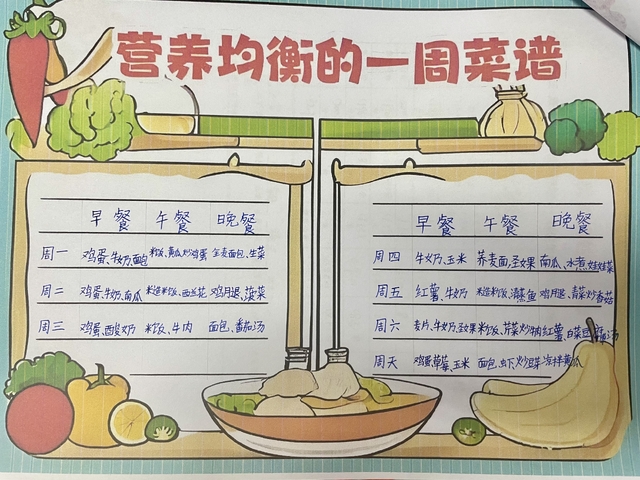 营养均衡的一周菜谱
早餐 午餐 晚餐
周一 鸡蛋、牛奶、面包 米饭、黄瓜炒鸡蛋 全麦面包、生菜
周二 鸡蛋、牛奶、南瓜 粗粮米饭、西兰花 鸡月退、菠菜
周三 鸡蛋、酸奶 米饭、牛肉 面包、番茄汤
早餐 午餐 晚餐
周四 牛奶、玉米 荞麦面、圣女果 南瓜、水煮娃娃菜
周五 红薯、牛奶 粗粮米饭、清蒸鱼 鸡月退、青菜炒香菇
周六 麦片、牛奶、圣女果 米饭、芹菜炒牛肉 红薯、白菜豆腐汤
周天 鸡蛋、草莓、玉米 面包、虾、炒菠菜 凉拌黄瓜